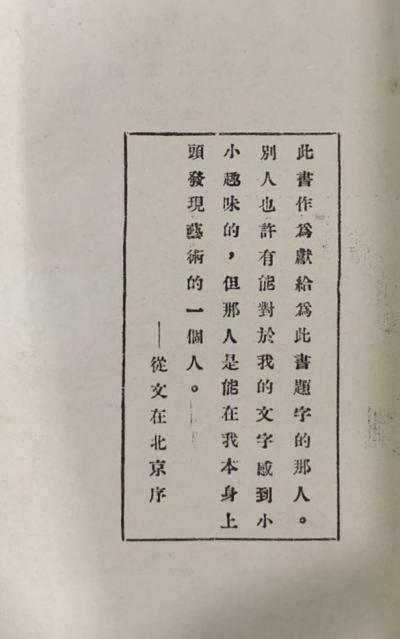 此書作爲獻給爲此書題字的那人。
別人也許有能對於我的文字感到小
小趣味的，但那人是能在我本身上
頭發現藝術的一個人。
——從文在北京序